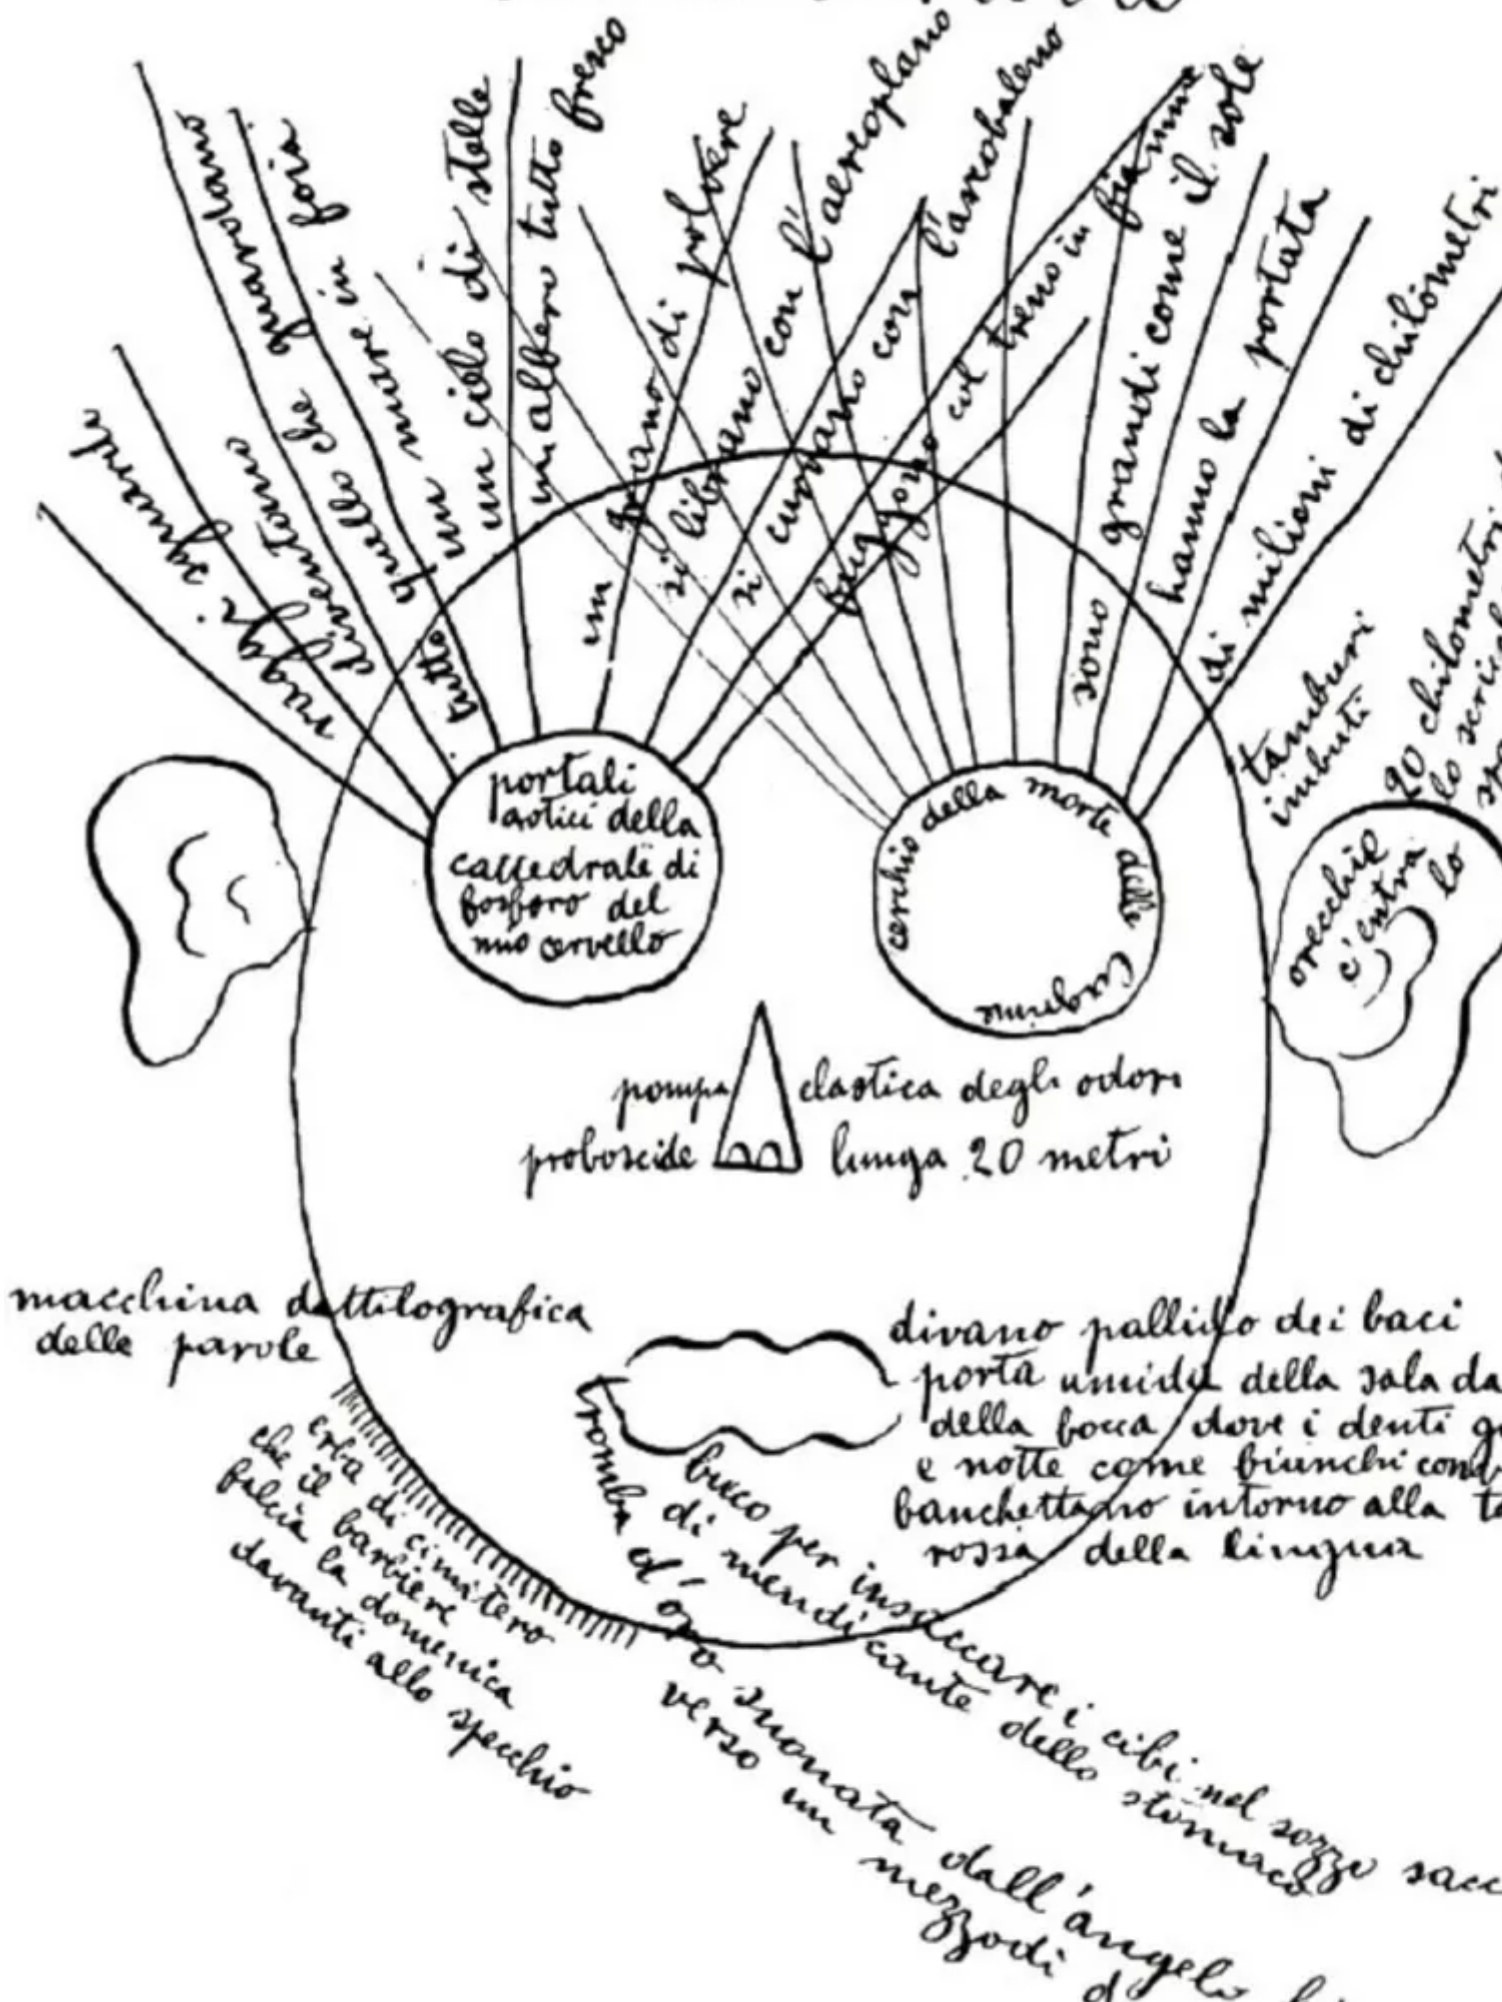 raggi sguardi
diventano
tutto quello che guardano
un mare in
un cielo di stelle
un albero tutto fresco
un grano di polvere
si librano con l'aereoplano
si curvano con l'arcobaleno
fuggono col treno in fiamme
sono grandi come il sole
hanno la portata
di milioni di chilometri
tamburi
imbuti
20 chilometri
lo
orecchie
c'entra
lo
portali
gotici della
cattedrale di
fosforo del
mio cervello
cerchio della morte delle
pompa elastica degli odori
proboscide lunga 20 metri
macchina dattilografica
delle parole
divano pallido dei baci
porta umida della sala da
della bocca dove i denti
e notte come bianchi
banchettano intorno alla
rossa della lingua
erba di cimitero
che il barbiere
falcia la domenica
davanti allo specchio
buco per insaccare i cibi nel sozzo
di mendicante dello stomaco
tromba d'oro suonata dall'angelo
verso un mezzodì